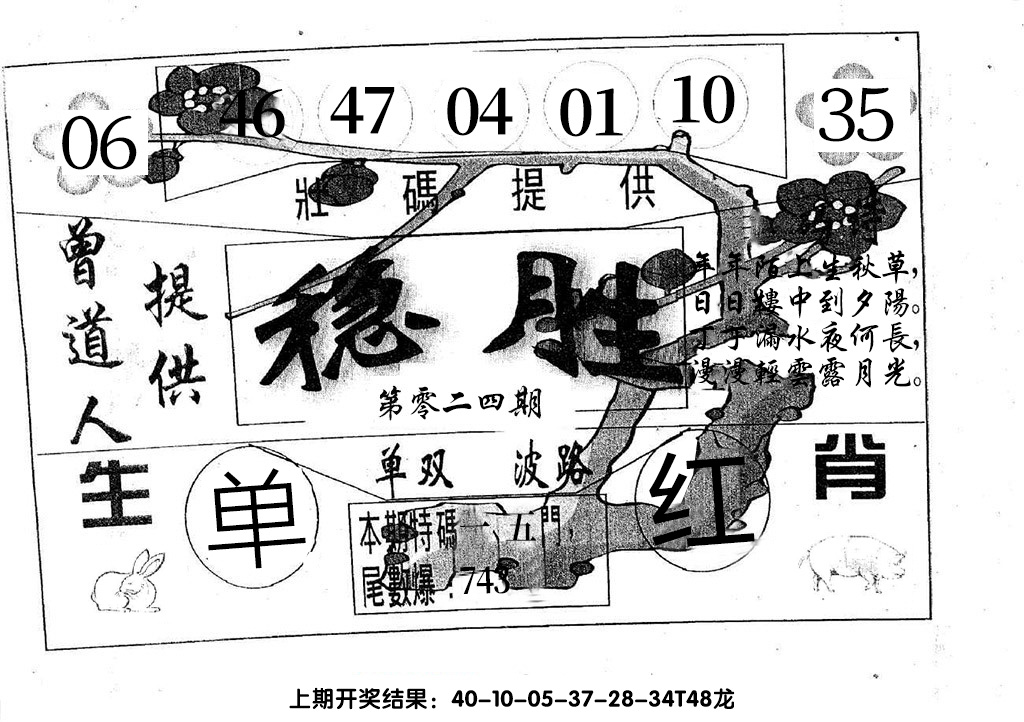 06 46 47 04 01 10 35
壯碼提供
曾道人
提供
稳胜
第零二四期
年年陌上生秋草,
日日樓中到夕陽。
丁丁漏水夜何長,
漫漫輕雲露月光。
单双 波路
生肖
单
红
本期特碼一、五門,
尾數爆:743
上期开奖结果:40-10-05-37-28-34T48龙